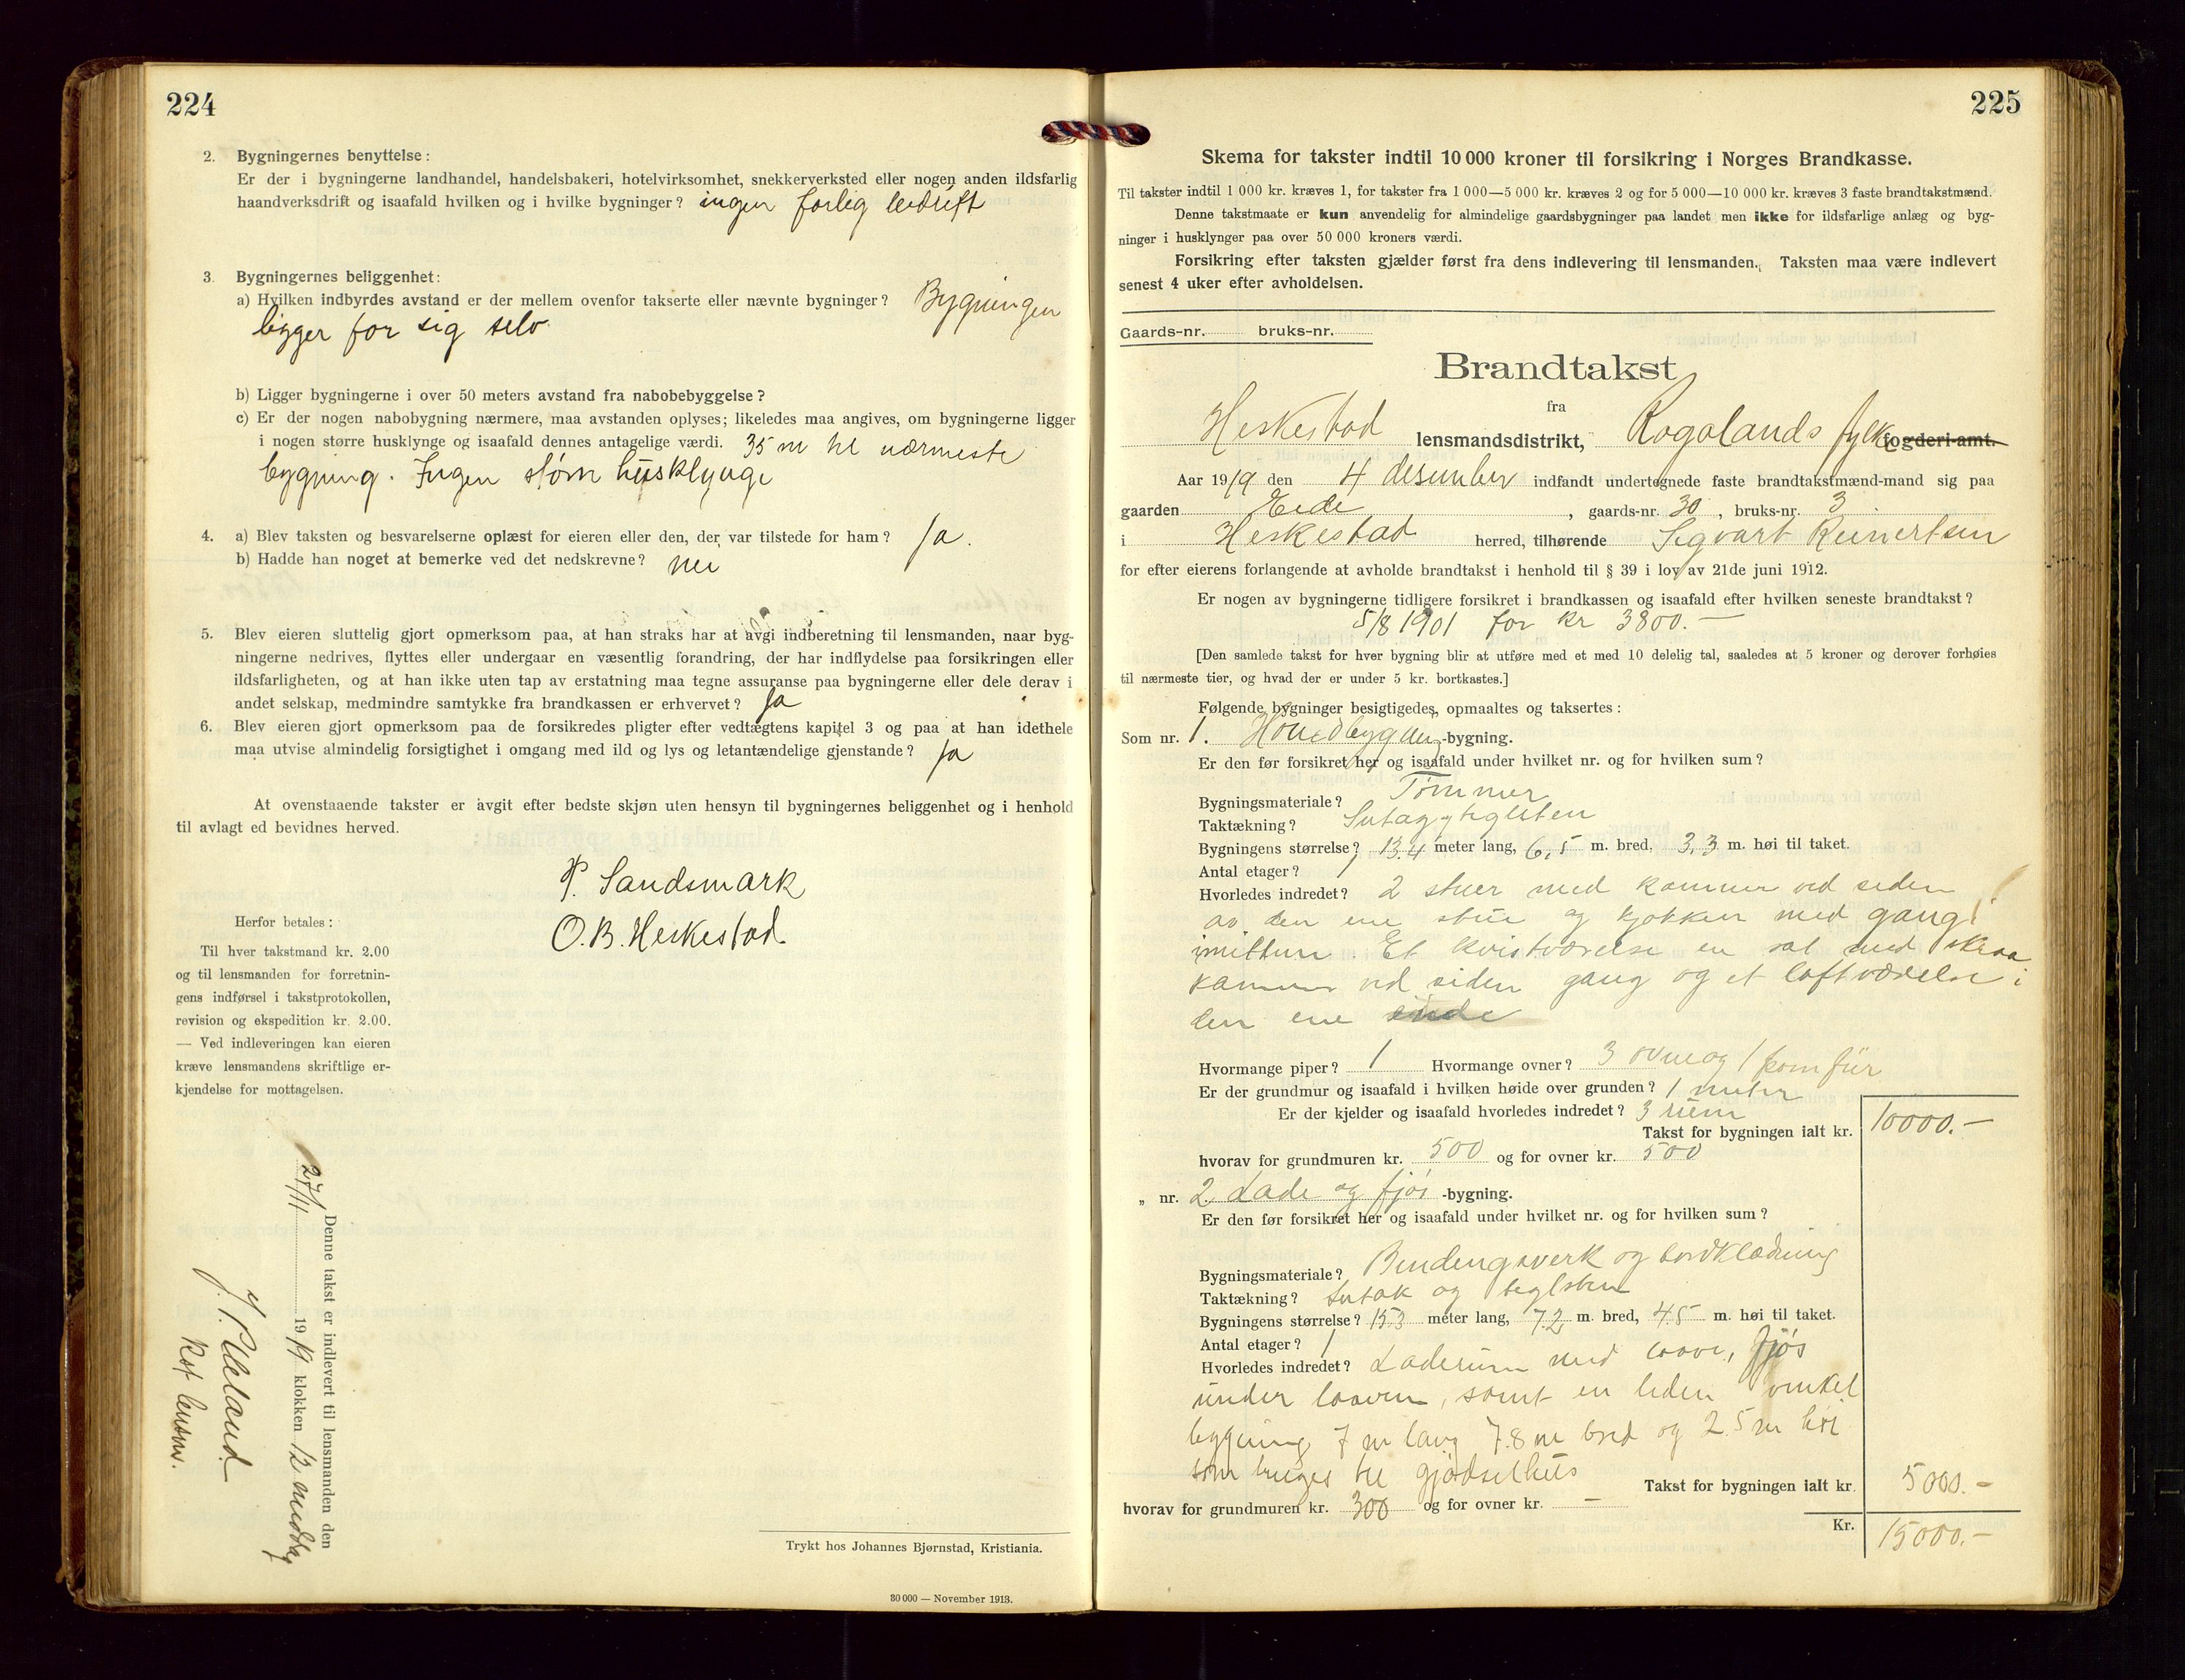 224
2. Bygningernes benyttelse:
Er der i bygningerne landhandel, handelsbakeri, hotelvirksomhet, snekkerverksted eller nogen anden ildsfarlig
haandverksdrift og isaafald hvilken og i hvilke bygninger? ingen farlig bedrift
3. Bygningernes beliggenhet:
a) Hvilken indbyrdes avstand er der mellem ovenfor takserte eller nævnte bygninger? Bygningen
ligger for sig selv
b) Ligger bygningerne i over 50 meters avstand fra nabobebyggelse?
c) Er der nogen nabobygning nærmere, maa avstanden oplyses; likeledes maa angives, om bygningerne ligger
i nogen større husklynge og isaafald dennes antagelige værdi. 35 m til nærmeste
bygning. Ingen større husklynge
4. a) Blev taksten og besvarelserne oplæst for eieren eller den, der var tilstede for ham? Ja.
b) Hadde han noget at bemerke ved det nedskrevne? nei
5. Blev eieren sluttelig gjort opmerksom paa, at han straks har at avgi indberetning til lensmanden, naar byg-
ningerne nedrives, flyttes eller undergaar en væsentlig forandring, der har indflydelse paa forsikringen eller
ildsfarligheten, og at han ikke uten tap av erstatning maa tegne assuranse paa bygningerne eller dele derav i
andet selskap, medmindre samtykke fra brandkassen er erhvervet? Ja
6. Blev eieren gjort opmerksom paa de forsikredes pligter efter vedtægtens kapitel 3 og paa at han idethele
maa utvise almindelig forsigtighet i omgang med ild og lys og letantændelige gjenstande? Ja
At ovenstaaende takster er avgit efter bedste skjøn uten hensyn til bygningernes beliggenhet og i henhold
til avlagt ed bevidnes herved.
P. Sandsmark
O. B. Heskestad
Herfor betales:
Til hver takstmand kr. 2.00
og til lensmanden for forretnin-
gens indførsel i takstprotokollen,
revision og ekspedition kr. 2.00.
— Ved indleveringen kan eieren
kræve lensmandens skriftlige er-
kjendelse for mottagelsen.
Denne takst er indlevert til lensmanden den
27/11 1919 klokken 12 middag
Ueland
lensm.
Trykt hos Johannes Bjørnstad, Kristiania.
30 000 — November 1913.
225
Skema for takster indtil 10 000 kroner til forsikring i Norges Brandkasse.
Til takster indtil 1 000 kr. kræves 1, for takster fra 1 000—5 000 kr. kræves 2 og for 5 000—10 000 kr. kræves 3 faste brandtakstmænd.
Denne takstmaate er kun anvendelig for almindelige gaardsbygninger paa landet men ikke for ildsfarlige anlæg og byg-
ninger i husklynger paa over 50 000 kroners værdi.
Forsikring efter taksten gjælder først fra dens indlevering til lensmanden. Taksten maa være indlevert
senest 4 uker efter avholdelsen.
Gaards-nr. bruks-nr.
Brandtakst
fra
Heskestad lensmandsdistrikt, Rogalands fylke fogderi-amt.
Aar 1919 den 4 desember indfandt undertegnede faste brandtakstmænd-mand sig paa
gaarden Eide, gaards-nr. 30, bruks-nr. 3
i Heskestad herred, tilhørende Sigvart Reinertsen
for efter eierens forlangende at avholde brandtakst i henhold til § 39 i lov av 21de juni 1912.
Er nogen av bygningerne tidligere forsikret i brandkassen og isaafald efter hvilken seneste brandtakst?
5/8 1901 for kr 3800.—
[Den samlede takst for hver bygning blir at utføre med et med 10 delelig tal, saaledes at 5 kroner og derover forhøies
til nærmeste tier, og hvad der er under 5 kr. bortkastes.]
Følgende bygninger besigtigedes, opmaaltes og taksertes:
Som nr. 1. -bygning.
Er den før forsikret her og isaafald under hvilket nr. og for hvilken sum?
Bygningsmateriale? Tømmer
Taktækning? Sutag og teglsten
Bygningens størrelse? 13.4 meter lang, 6,5 m. bred, 3,3 m. høi til taket.
Antal etager? 1
Hvorledes indredet? 2 stuer med kammer ved siden
av den ene stue og kjøkken med gang i
imitten. Et kvistværelse en sal med skraa
kammer ved siden gang og et loftværelse i
den ene ende
Hvormange piper? 1 Hvormange ovner? 3 ovne og 1 komfür
Er der grundmur og isaafald i hvilken høide over grunden? 1 meter
Er der kjelder og isaafald hvorledes indredet? 3 rum
Takst for bygningen ialt kr. 10000.—
hvorav for grundmuren kr. 500 og for ovner kr. 500
„ nr. 2. Lade og fjøs -bygning.
Er den før forsikret her og isaafald under hvilket nr. og for hvilken sum?
Bygningsmateriale? Bindengsverk og bordklædning
Taktækning? Sutak og teglsten
Bygningens størrelse? 15.3 meter lang, 7.2 m. bred, 4.5 m. høi til taket.
Antal etager? 1
Hvorledes indredet? Laderum med laave, fjøs
under laaven, samt en liden vinkel
bygning 7 m lang 7.8 m bred og 2.5 m høi
som bruges til gjødselhus
Takst for bygningen ialt kr. 5000.—
hvorav for grundmuren kr. 300 og for ovner kr. —
Kr. 15000.—